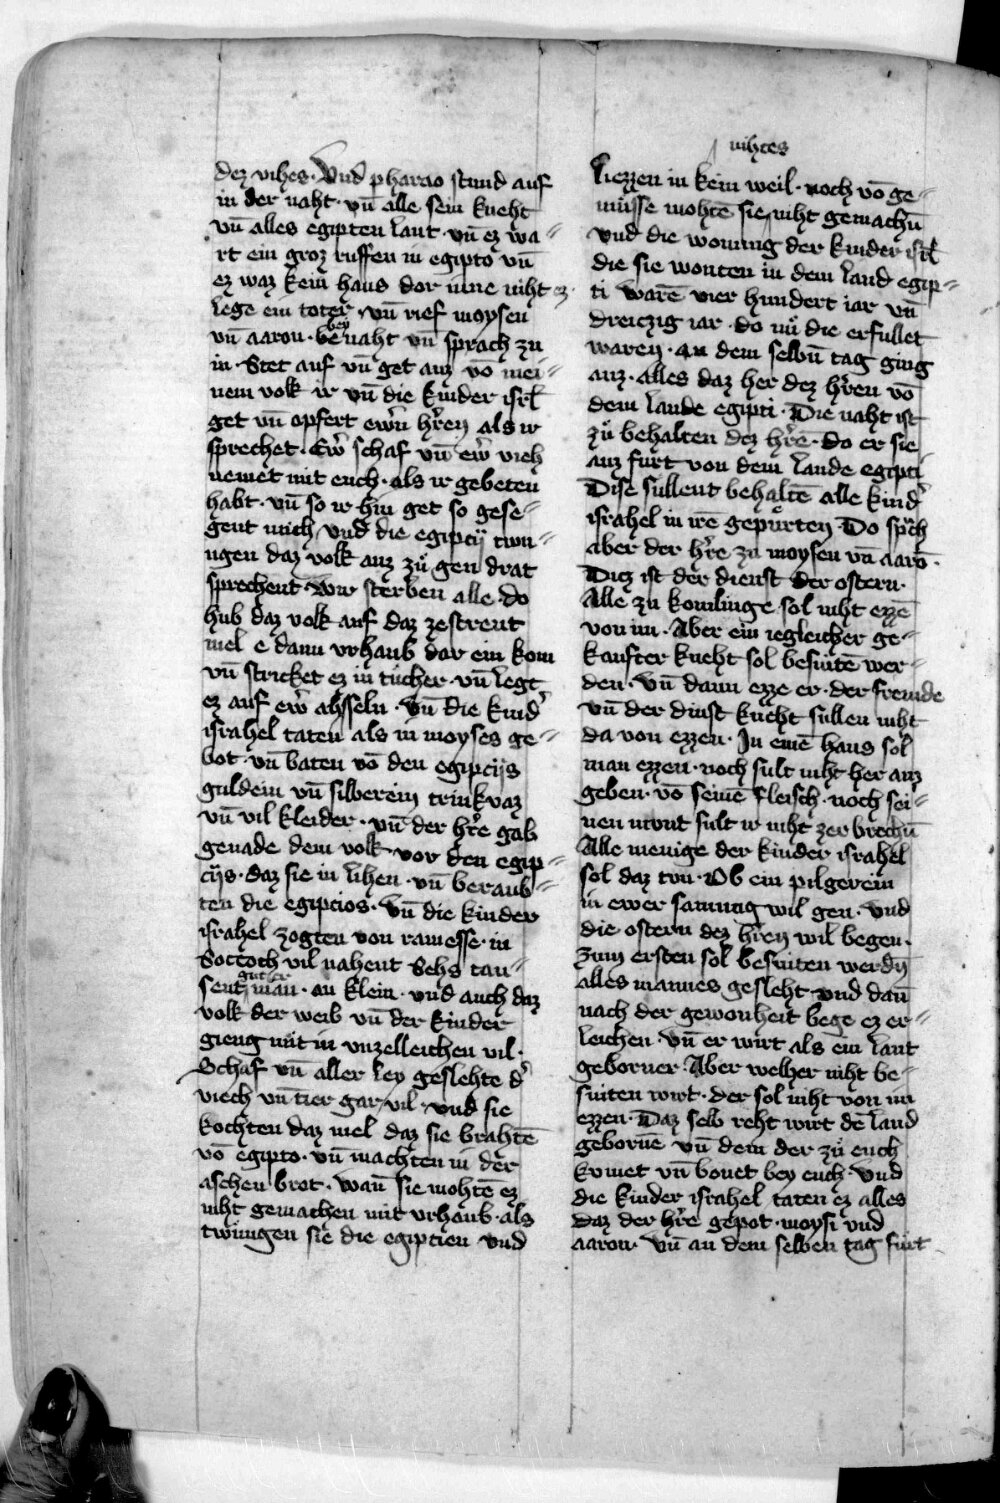 dez vihes · Vnd pharao stund auf
in der naht · vn̄ alle sein kneht
vn̄ alles egipten lant · vn̄ ez wa⸗
rt ein groz ruffen in egipto vn̄
ez waz kein haus dor inne niht ez ·
lege ein toter · vn̄ rief moysen
vn̄ aaron · bey
be naht vn̄ sprach zu
in · Stet auf vn̄ get auz vō mei⸗
nem volk ir vn̄ die kinder isrl̄
get vn̄ opfert ewrn̄ hr̄en als ir
sprechet · Ewr̄ schaf vn̄ ewr̄ vieh
nemet mit euch · als ir gebeten
habt · vn̄ so ir hin get so gese⸗
gent mich Vnd die egipcij twu⸗
ngen daz volk auz zů gen drat
sprechent · Wir sterben alle · do
hub daz volk auf daz zestreut
mel e dann vrhaub dar ein kom
vn̄ stricket ez in tücher · vn̄ legt
ez auf ewr̄ ahsseln · Vn̄ die kind̕
israhel taten als in moyses ge⸗
bot · vn̄ baten vō den egipcijs
guldein vn̄ silberein trinkvaz
vn̄ vil kleider · vn̄ der hr̄e gab
genade dem volk vor den egip⸗
cijs · daz sie in lihen · vn̄ beraub⸗
ten die egipcios · Vn̄ die kinder
israhel zogten von ramesse · in
Soctoch vil nahent Sehs tau⸗
guter
sent man · an klein · vnd auch daz
volk der weib vn̄ der kinder
gieng mit in vnzelleichen vil ·
Schaf vn̄ aller ley geslehte d̕
viech vn̄ tier gar vil · vnd sie
kochten daz mel daz sie brahtē
vō egipto · vn̄ machten in der
aschen brot · wan̄ sie mohtē ez
niht gemachen mit vrhaub · als
twungen sie die egiptien vnd
nihtes
liezzen in kein weil · noch vō ge⸗
müsse mohtē sie niht gemachn̄
Vnd die wonung der kinder isrl̄
die sie wonten in dem land egip⸗
ti warē vier hundert iar vn̄
dreiczig iar · do nů die erfullet
waren · an dem selbn̄ tag ging
auz · alles daz her dez hr̄en vō
dem lande egipti · Die naht ist
zů behalten dez hr̄e · do er sie
auz furt von dem lande egipti
Dise sullent behaltē alle kind̕
israhel in irē gepürten · Do sprch
aber der hr̄e zu moysen vn̄ aarō ·
Ditz ist der dienst der ostern ·
Alle zu komlinge sol niht ezzē
von im · Aber ein iegleicher ge⸗
kaufter kneht sol besnitē wer⸗
den · vn̄ dann ezze er · der fremde
vn̄ der dinst kneht sullen niht
da von ezzen · In einē haus sol
man ezzen · noch sult niht her auz
geben · vō seinē fleisch · noch sei⸗
nen mut sult ir niht zerbrechn̄
Alle menige der kinder israhel
sol daz tun · Ob ein pilgerein
in ewer samnug wil gen · Vnd
die ostern dez hr̄en wil begen ·
zum ersten sol besniten werdn̄
alles mannes gesleht · vnd dan̄
nach der gewonheit bege ez er⸗
leichen · vn̄ er wirt als ein lant
geborner · Aber welher niht be⸗
sniten wirt · der sol niht von im
ezzen · Daz selb reht wirt dē land
gebornē vn̄ dem der zů euch
kumet vn̄ bouet bey euch · Vnd
die kinder israhel taten ez alles
daz der hr̄e gepot · moysi vnd
aaron · Vn̄ an dem selben tag furt